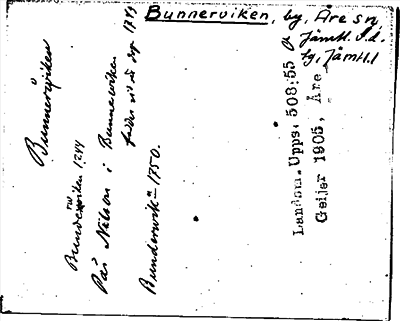 Bunnerviken, by, Åre sn,
Jämtl. l.d.
Jämtl. l
Bunnerviken
Bunderviken 1744
Pär Nilson i Bunnerviken
1749
Bunderwik 1750.
Landsm. Upps. 508:55
Geijer 1905, Åre